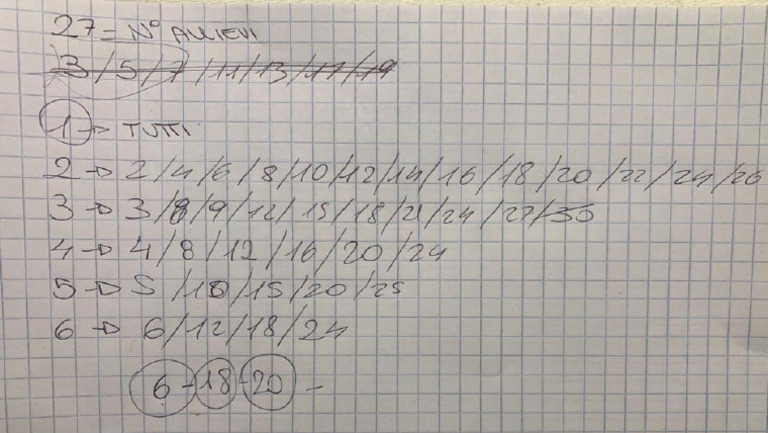 27 = N° ALLIEVI
3/5/7/11/13/17/19
1 → TUTTI
2 → 2/4/6/8/10/12/14/16/18/20/22/24/26
3 → 3/6/9/12/15/18/21/24/27/30
4 → 4/8/12/16/20/24
5 → 5/10/15/20/25
6 → 6/12/18/24
6 - 18 - 20 -